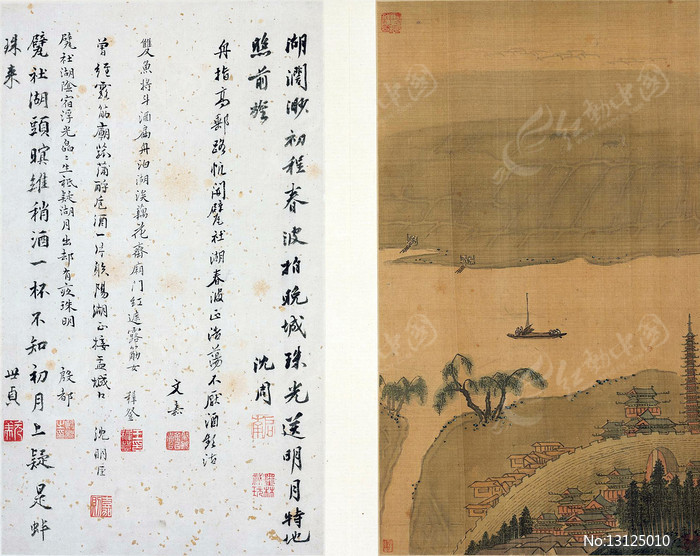 湖濶渺初程春波拍晚城珠光送明月特地
照前旌 沈周
舟指高郵路忻聞甓社湖春波正浩蕩不厭酒頻沽
文嘉
雙魚將斗酒扁舟泊湖 藕花齋廟門紅遮露筋女 穉登
曾經露筋廟 蒲醉 酒一片 陽湖正接盂城口 沈明臣
甓社湖陰宿浮光 生祗疑湖月出却有夜珠明 殷都
甓社湖頭暝維稍酒一杯不知初月上疑是蚌
珠来 世貞
红动中国
No:13125010